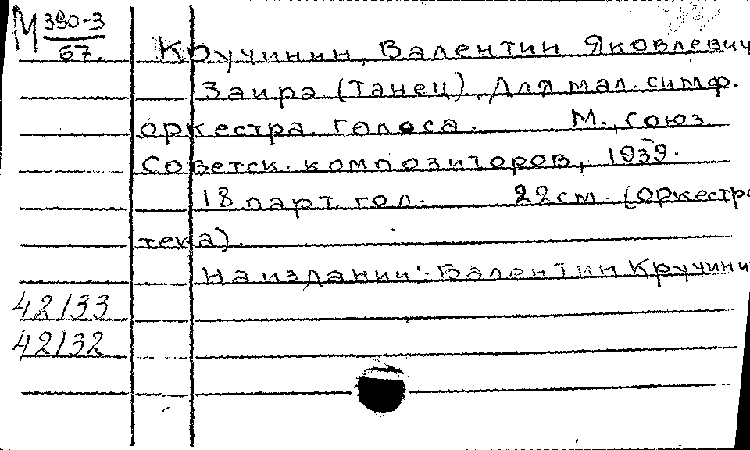 М 390-3
67.
Кручинин, Валентин Яковлевич
Заира (Танец). Для мал. симф.
оркестра. Голоса. М., Союз
Советск. композиторов, 1939.
18 парт. гол. 22 см. (оркестро
тека).
На издании: Валентин Кручини
42133
42132